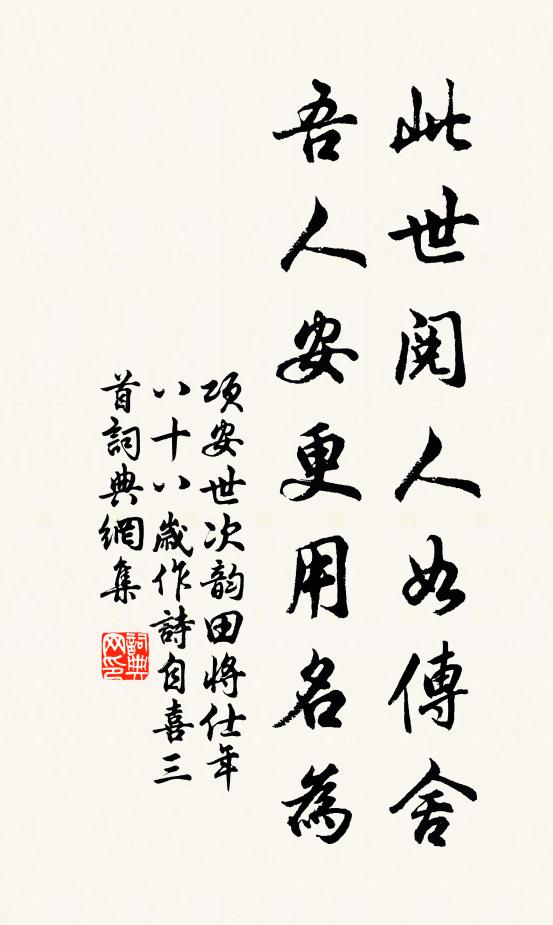 此世閱人如傳舍
吾人安更用名為
項安世次韵田將仕年
八十八歲作詩自喜三
首詞典網集
詞典网印